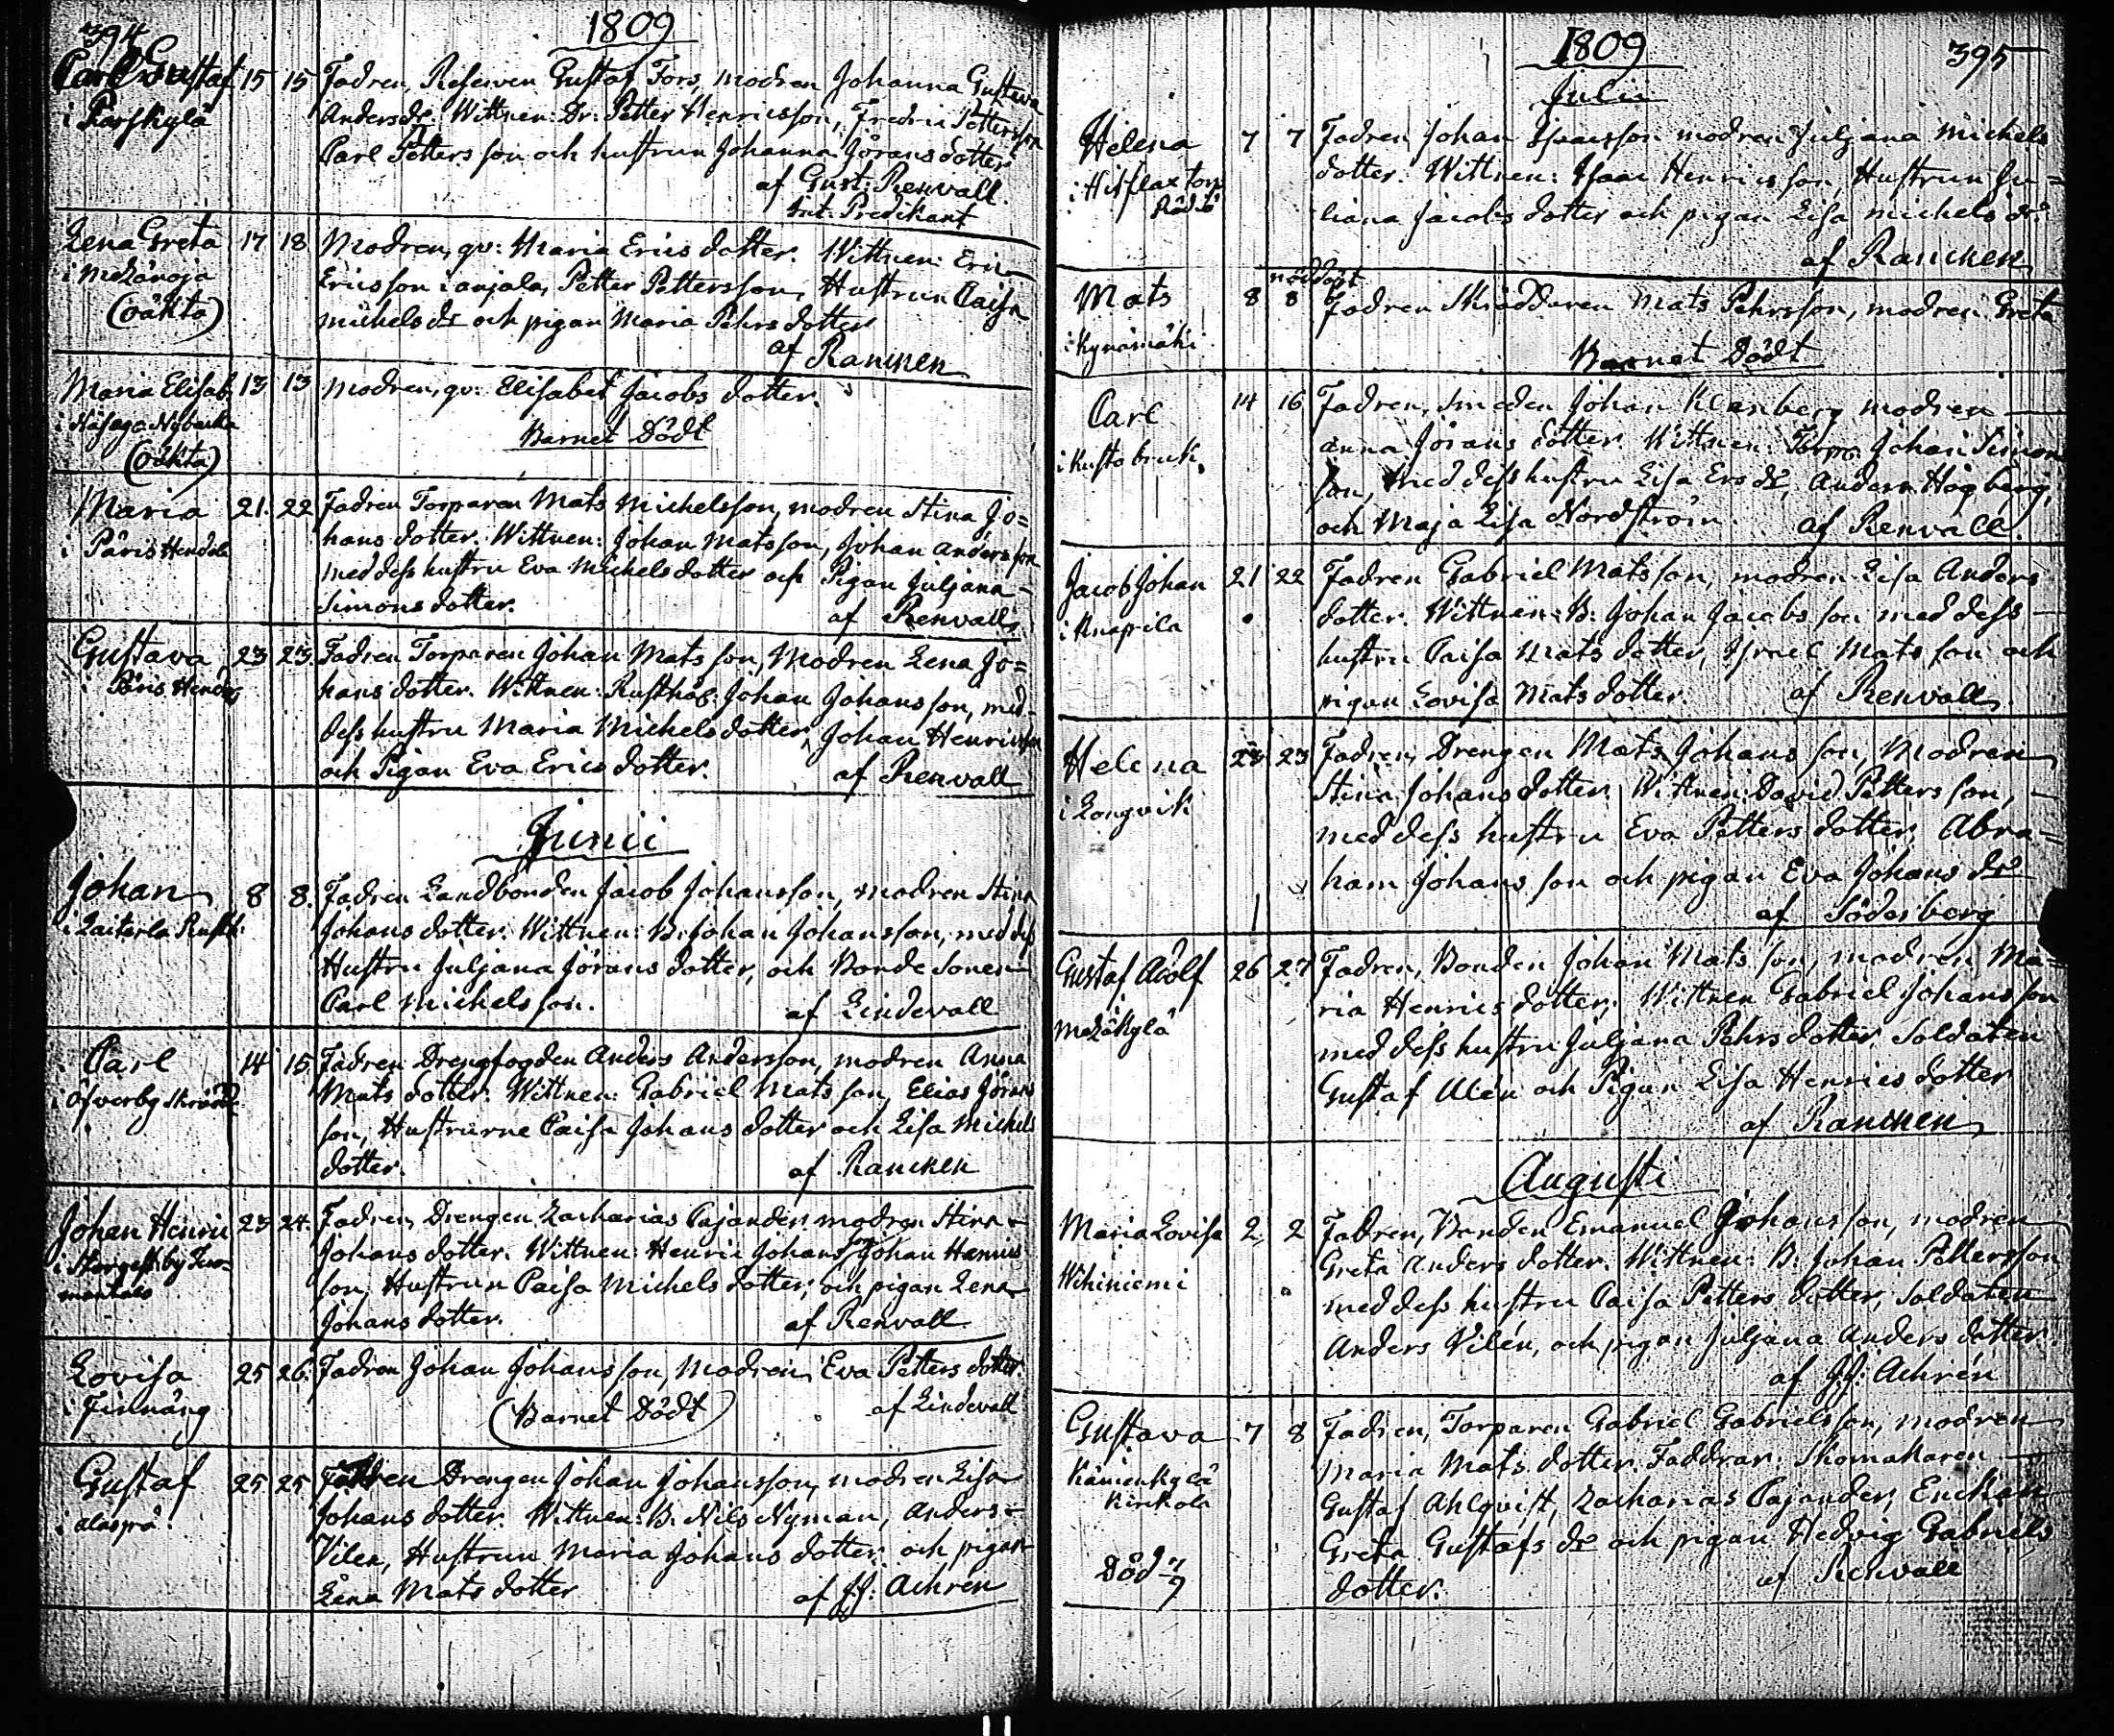 394
1809
Carl Gustaf 15 15 Fadren, Reserven Gustaf Fors, modren Johanna Gustava
i Karskylä Anders dr. Wittnen: Dr: Petter Henricsson, Fredric Pettersson
Carl Petters son och hustrun Johanna Jörans dotter
af Gust: Renvall.
Predikant
Lena Greta 17 18 Modren, qv: Maria Erics dotter. Wittnen: Eric
i Metzänoja Ericsson i anjala, Petter Pettersson, Hustrun Caisa
(oäkta) michels dr och pigan Maria Pehrs dotter
af Rancken
Maria Elisab. 13 13 Modren, qv: Elisabet Jacobs dotter.
Nybacka Barnet Dödt
(oäkta)
Maria 21. 22 Fadren Torparen Mats Michelsson, modren Stina Jo=
i Päris Hendola hans dotter. Wittnen: Johan Matsson, Johan Andersson
med dess hustru Eva Michels dotter och Pigan Juljana
Simons dotter. af Renvall
Gustava 23 23 Fadren Torparen Johan Mats son, Modren Lena Jo=
i Päris Hendola hans dotter. Wittnen: Rusthål: Johan Johansson, med
dess hustru Maria Michels dotter, Johan Henricsson
och Pigan Eva Erics dotter. af Renvall
Junii
Johan 8 8. Fadren Landbonden Jacob Johansson, modren Stina
i Laiterla Rusth: Johans dotter. Wittnen: B: Johan Johansson, med dess
Hustru Juljana Jörans dotter, och Bonde Sonen
Carl Michels son. af Lindevall
Carl 14 15 Fadren Drengfogden Anders Andersson, modren Anna
i Öfverby Mats dotter. Wittnen: Gabriel Mats son, Elias Jörans
son, Hustrurne Caisa Johans dotter och Lisa Michels
dotter. af Rancken
Johan Henric 23 24. Fadren, Drengen Zacharias Cajander, modren Stina
Johans dotter. Wittnen: Henric Johans son Johan Henrics
son, Hustrun Caisa Michels dotter, och pigan Lena
Johans dotter. af Renvall
Lovisa 25 26. Fadren Johan Johans son, Modren Eva Petters dotter.
i Finnäng (Barnet Dödt) af Lindevall
Gustaf 25 25 Fadren Drengen Johan Johansson, modren Lisa
i alaspä Johans dotter. Wittnen: B: Nils Nyman, Anders
Vilen, Hustrun Maria Johans dotter och pigan
Lena Mats dotter af JJ: Achren
1809 395
Julii
Helena 7 7 Fadren Johan Isaacsson modren Juljana Michels
dotter. Wittnen: Isaac Henrics son, Hustrun Ju=
liana Jacobs dotter och pigan Lisa michels dr
af Rancken
nöddöpt
Mats 8 8 Fadren Skräddaren Mats Pehrsson, modren Greta
i Kynämäki Barnet Dödt
Carl 14 16 Fadren, Smeden Johan Klenberg modren
i Kusto bruk. anna Jörans dotter Wittnen: Torp: Johan Simon
son, med dess hustru Lisa Ers dr, Anders Högberg,
och Maja Lisa Nordström. af Renvall.
Jacob Johan 21 22 Fadren Gabriel Matsson, modren Lisa Anders
i Knapila dotter. Wittnen: B: Johan Jacobs son med dess
hustru Caisa Mats dotter, Israel Mats son och
pigan Lovisa Mats dotter. af Renvall
Helena 23 Fadren, Drengen Mats Johans son, Modren
i Longvik Stina Johans dotter. Wittnen: David Petters son,
med dess hustru Eva Petters dotter, Abra=
ham Johans son och pigan Eva Johans dr
af Söderberg
Gustaf Adolf 26 27 Fadren, Bonden Johan Mats son, modren Ma=
Metzäkylä ria Henrics dotter, Wittnen Gabriel Johans son
med dess hustru Juljana Pehrs dotter, Soldaten
Gustaf Alén och Pigan Lisa Henrics dotter
af Rancken
Augusti
Maria Lovisa 2, 2 Fadren, Bonden Emanuel Johansson, modren
Wihiniemi Greta Anders dotter. Wittnen: B: Johan Pettersson
med dess hustru Caisa Petters dotter, Soldaten
Anders Vilén, och pigan Juljana Anders dotter
af JJ: Achrén
Gustava 7 8 Fadren, Torparen Gabriel Gabrielsson, modren
Kämenkylä Maria Mats dotter. Faddrar: Skomakaren
Kirkola Gustaf Ahlqvist, Zacharias Cajander, Enckan
Greta Gustafs dr och pigan Hedvig Gabriels
Död 7/9 dotter. af Renvall